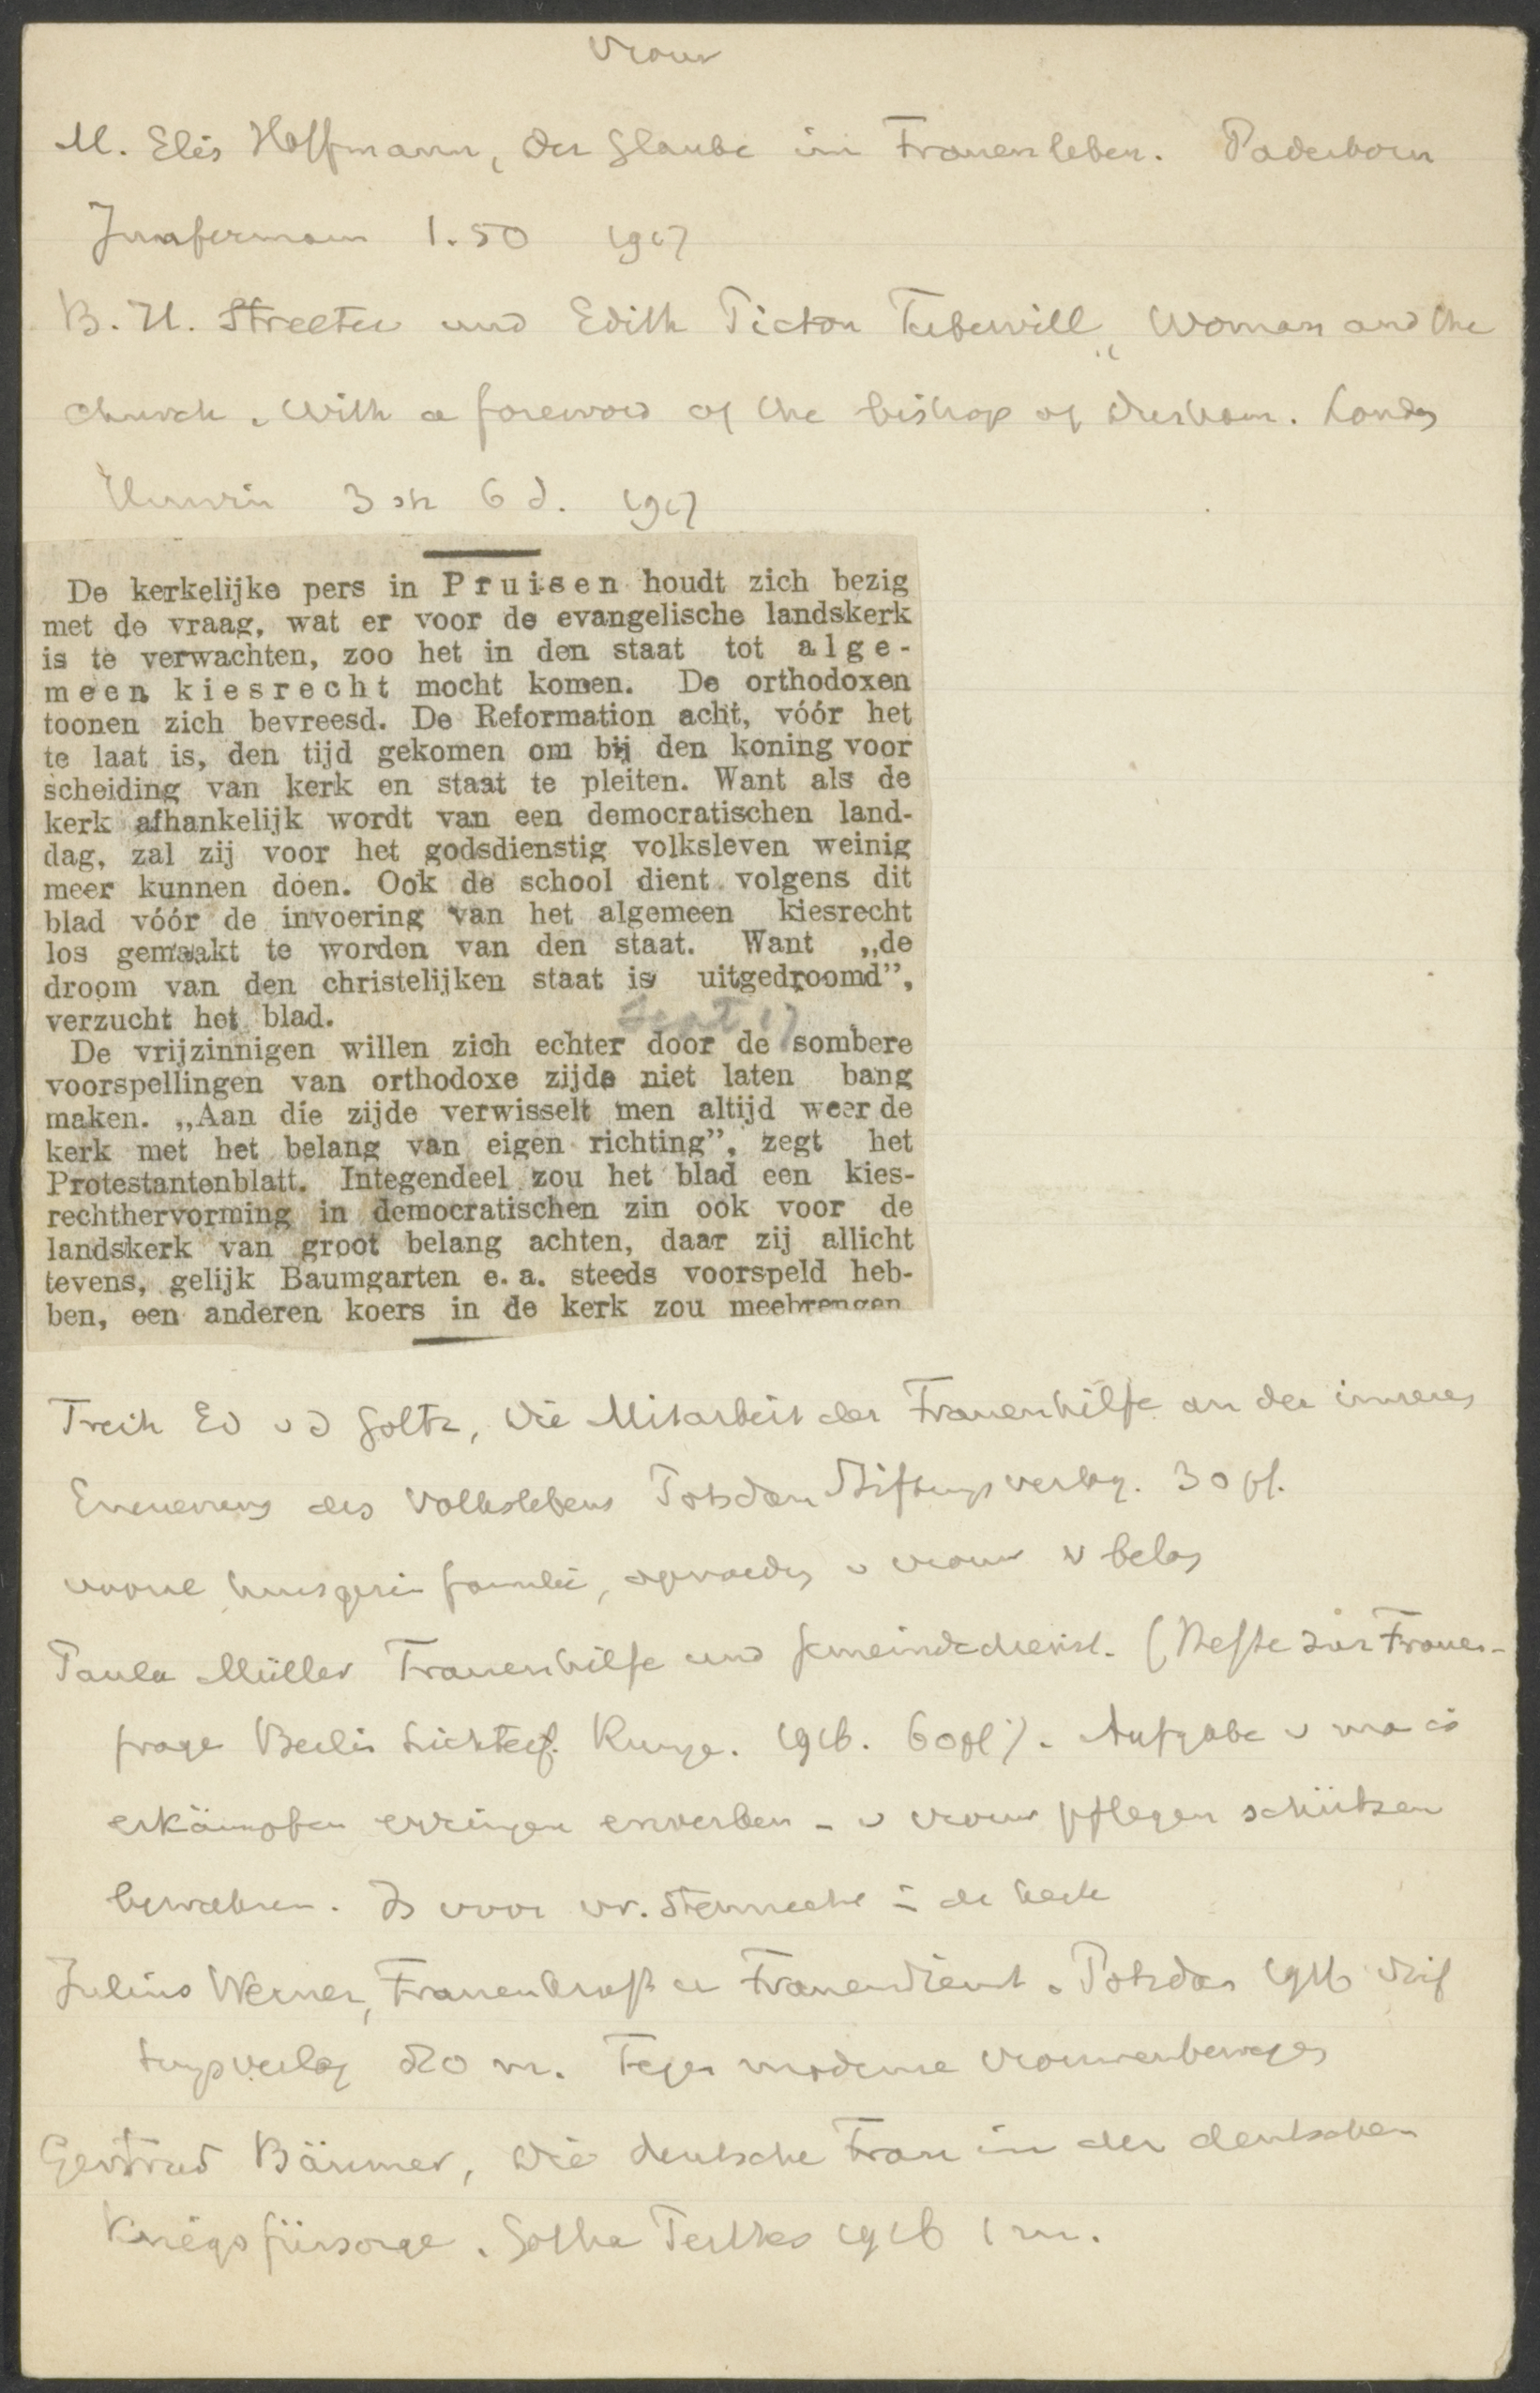 Vrouw
M. Elis Hoffmann, Der Glaube im Frauenleben. Paderborn
Junfermann 1.50 1917
B. H. Streeter und Edith Picton Tuberwill, Woman and the
church. With a foreword of the bishop of Durham. London
Unwin 3 sh 6 d. 1917
De kerkelijke pers in Pruisen houdt zich bezig
met de vraag, wat er voor de evangelische landskerk
is te verwachten, zoo het in den staat tot alge-
meen kiesrecht mocht komen. De orthodoxen
toonen zich bevreesd. De Reformation acht, vóór het
te laat is, den tijd gekomen om bij den koning voor
scheiding van kerk en staat te pleiten. Want als de
kerk afhankelijk wordt van een democratischen land-
dag, zal zij voor het godsdienstig volksleven weinig
meer kunnen doen. Ook de school dient volgens dit
blad vóór de invoering van het algemeen kiesrecht
los gemaakt te worden van den staat. Want „de
droom van den christelijken staat is uitgedroomd”,
verzucht het blad.
Sept 17
De vrijzinnigen willen zich echter door de sombere
voorspellingen van orthodoxe zijde niet laten bang
maken. „Aan die zijde verwisselt men altijd weer de
kerk met het belang van eigen richting”, zegt het
Protestantenblatt. Integendeel zou het blad een kies-
rechthervorming in democratischen zin ook voor de
landskerk van groot belang achten, daar zij allicht
tevens, gelijk Baumgarten e. a. steeds voorspeld heb-
ben, een anderen koers in de kerk zou meebrengen
Freih Ed v d Goltz, Die Mitarbeit der Frauenhilfe an der inneren
Erneuerung des Volkslebens Potsdam Stiftungsverlag. 30 pf.
vooral huisgezin familie, opvoeding v vrouw v belang
Paula Müller Frauenhilfe und Gemeindedienst. (Hefte zur Frauen-
frage Berlin Lichterf. Runge. 1916. 60 pf). Aufgabe v man is
erkämpfen erringen erwerben - v vrouw pflegen schützen
bewahren. Is voor vr. stemrecht in de kerk
Julius Werner, Frauenkraft u Frauendienst. Potsdam 1916 Stif
tungsverlag 20 m. Tegen moderne vrouwenbeweging
Gertrud Bäumer, Die deutsche Frau in der deutschen
Kriegsfürsorge. Gotha Perthes 1916 1 m.